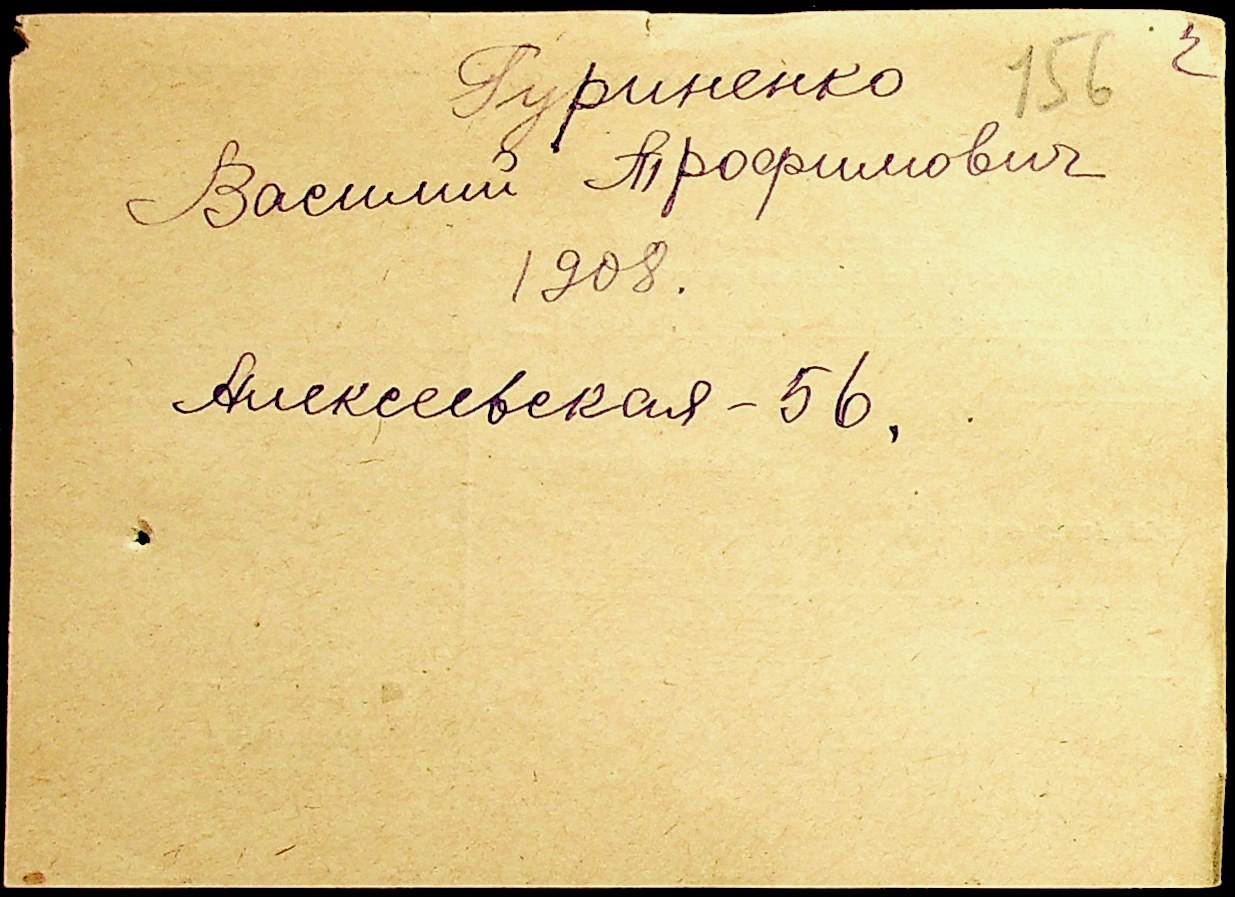 Гуриненко 156
Василий Трофимович
1908.
Алексеевская - 56.